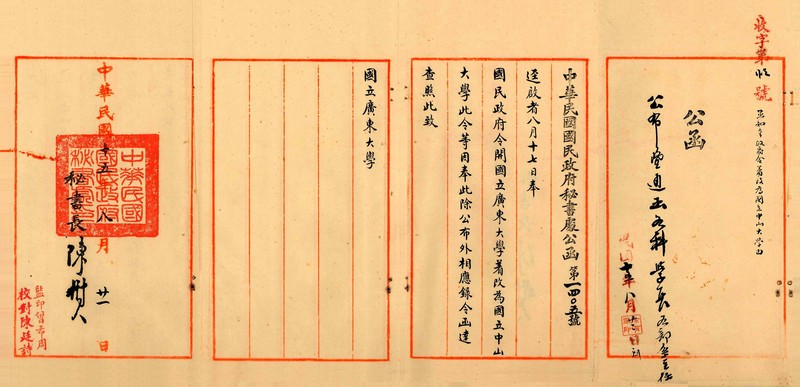 收字第 號
公函
公布並通函各科學長各部主任
民國十五年八月 日
中華民國國民政府秘書處公函 第一四〇五號
逕啟者八月十七日奉
國民政府令開國立廣東大學著改為國立中山
大學此令等因奉此除公布外相應錄令函達
查照此致
國立廣東大學
中華民國十五年八月廿一日
秘書長陳樹人
中華民國國民政府秘書處印
監印曾希周
校對陳廷詩